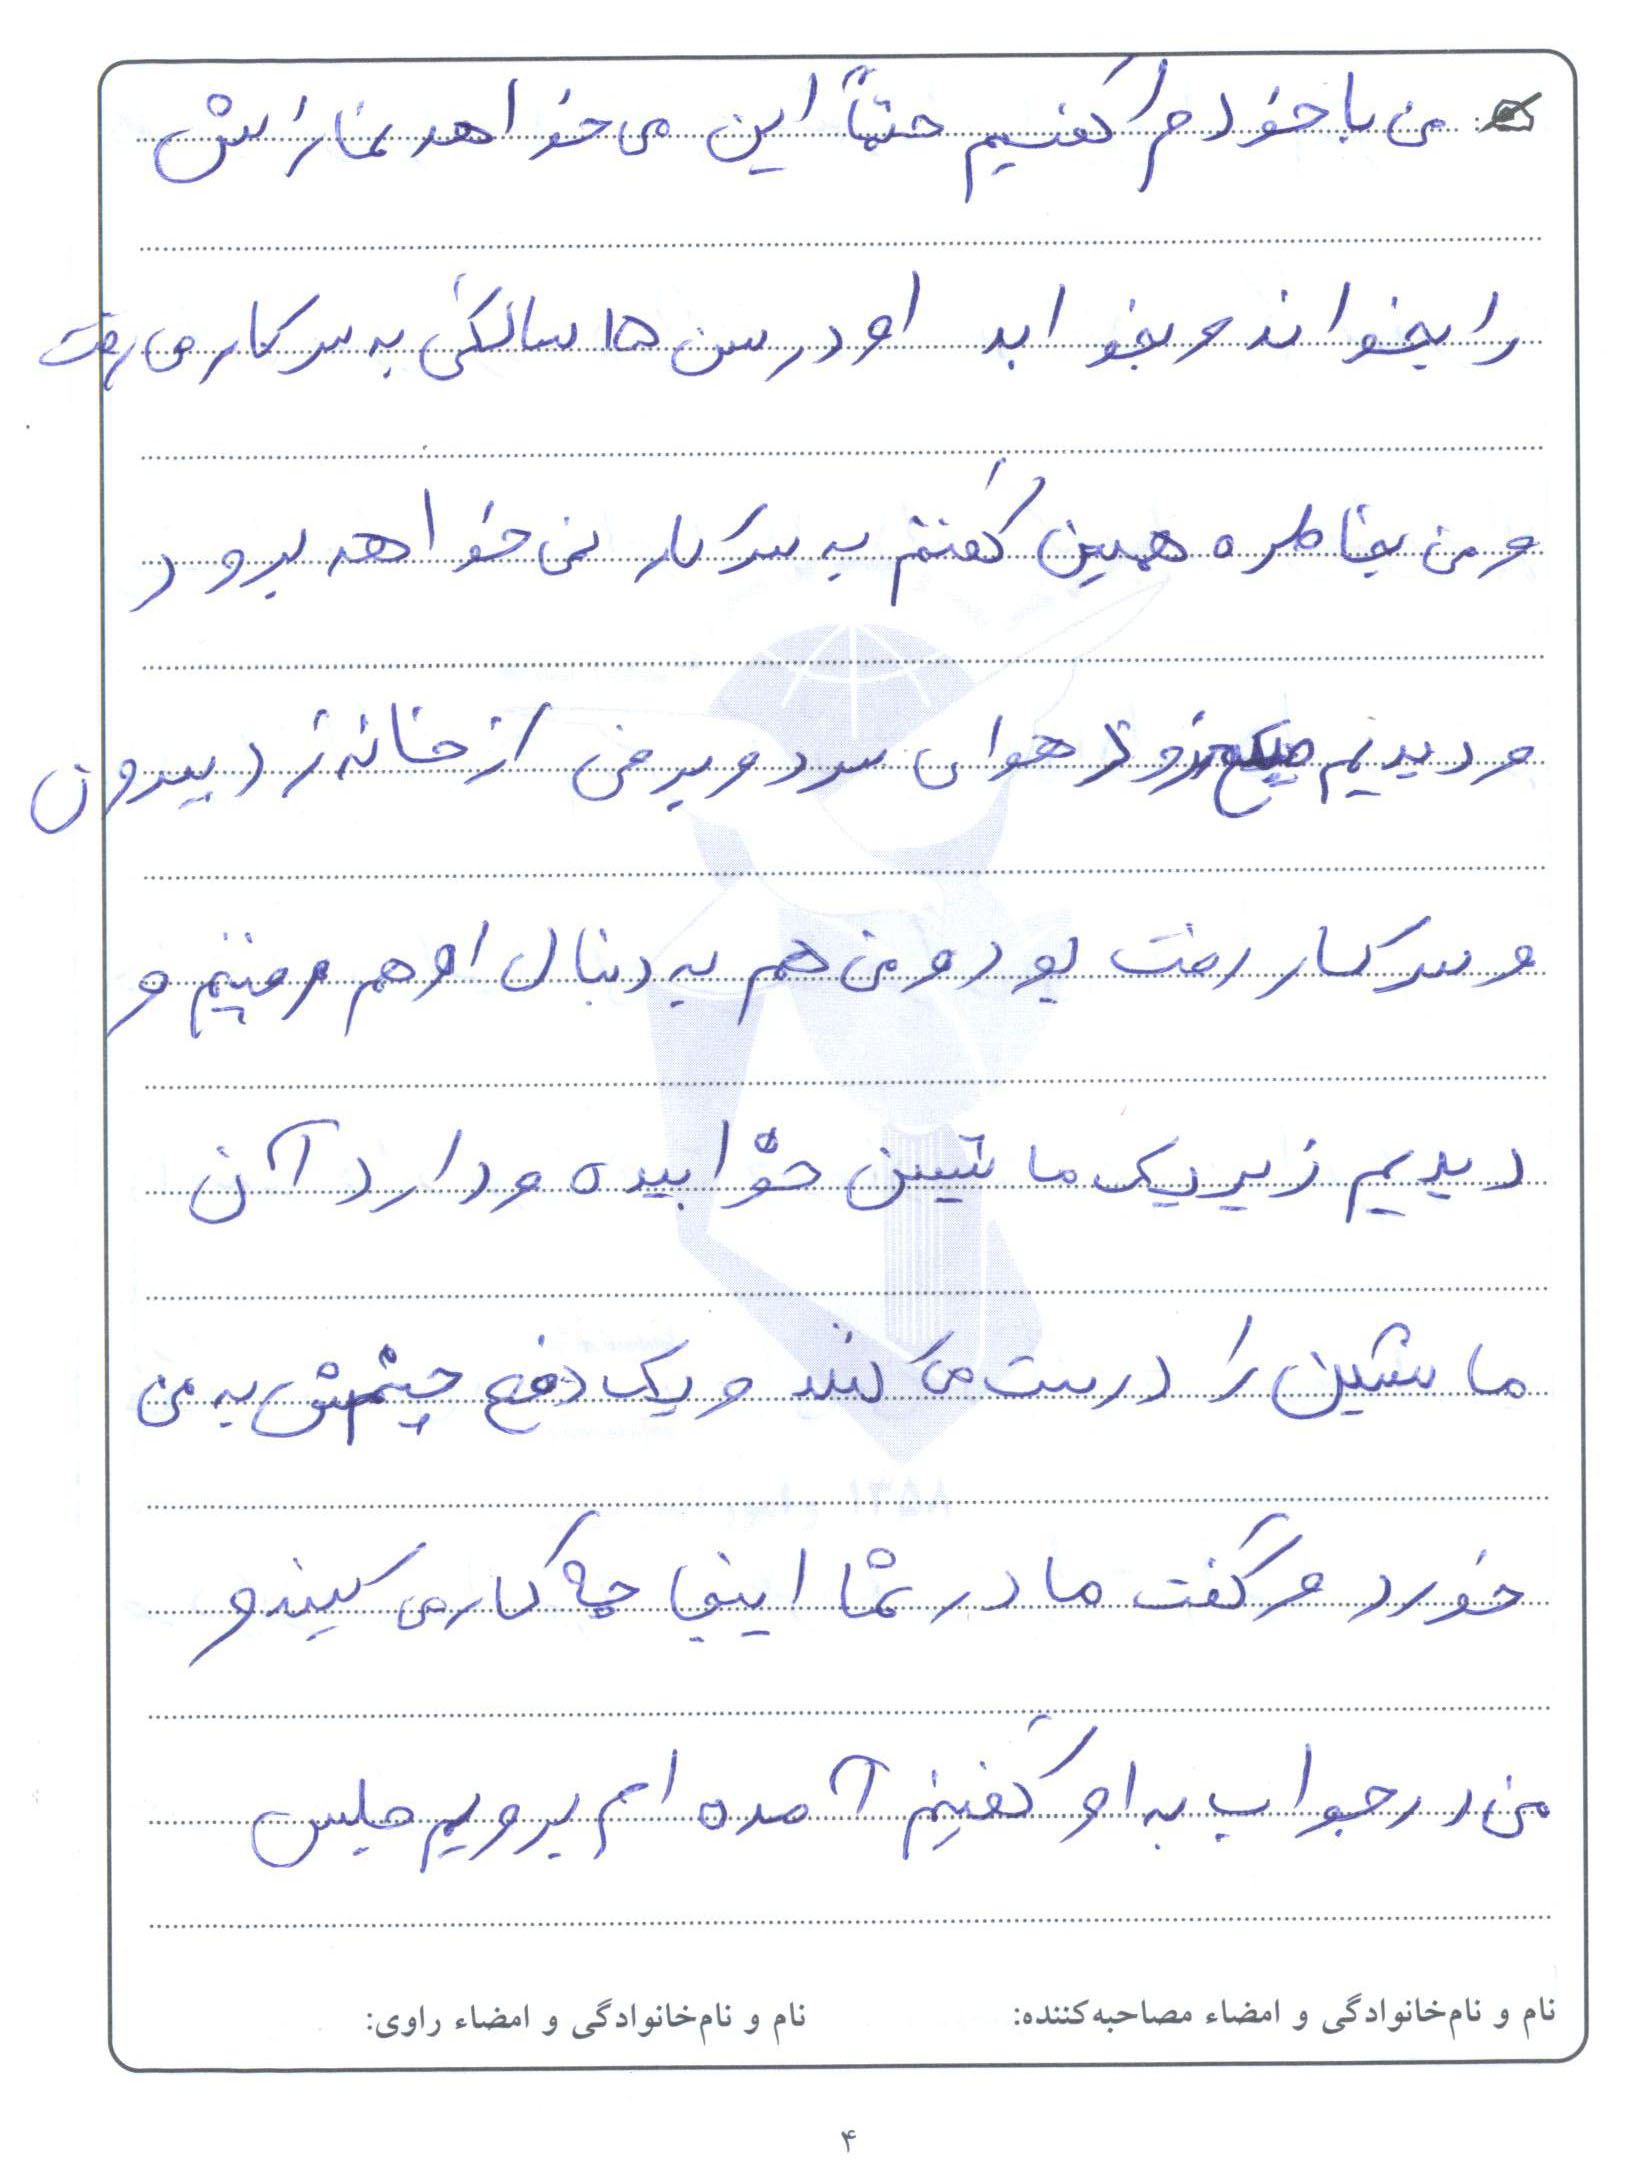 من با خودم گفتیم حتماً این می خواهد نمازش
را بخواند و بخوابد او در سن ۱۵ سالگی به سر کار می رفت
و من بخاطره همین گفتم به سر کار نمی خواهد برود
و دیدیم صبح زود در هوای سرد و برفی از خانه زد بیرون
و سر کار رفت بود و من هم به دنبال او هم رفتیم و
دیدیم زیر یک ماشین خوابیده و دارد آن
ماشین را درست می کند و یک دفع چشمش به من
خورد و گفت مادر شما اینجا چه کار می کیند و
من در جواب به او گفتیم آمده ام برویم مجلس
نام و نام‌خانوادگی و امضاء مصاحبه‌کننده: نام و نام‌خانوادگی و امضاء راوی:
۴